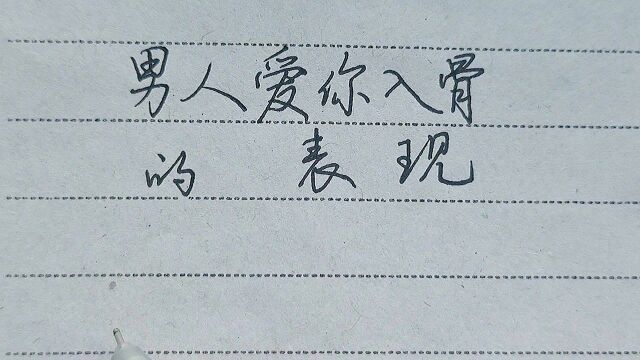 男人爱你入骨
的 表现